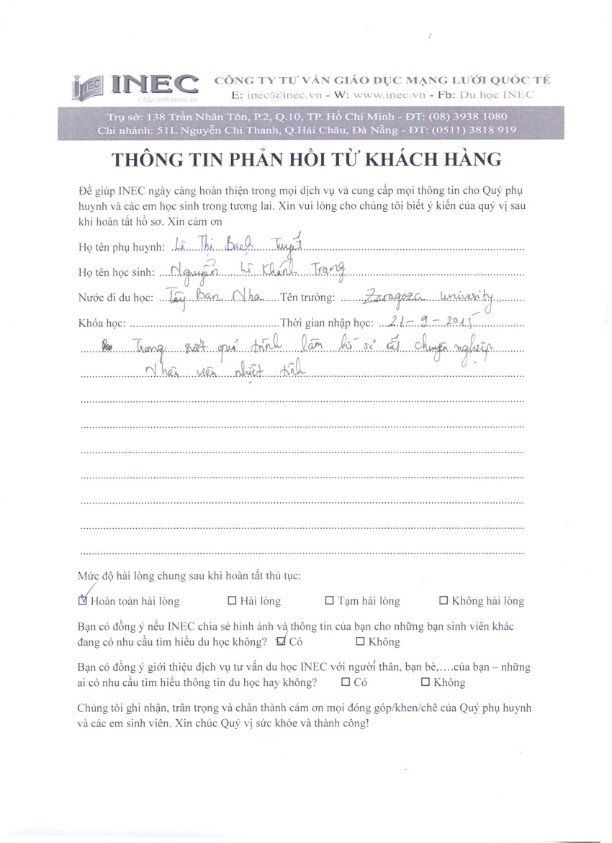 INEC
CÔNG TY TƯ VẤN GIÁO DỤC MẠNG LƯỚI QUỐC TẾ
E: inec@inec.vn - W: www.inec.vn - Fb: Du học INEC
Trụ sở: 138 Trần Nhân Tôn, P.2, Q.10, TP. Hồ Chí Minh - ĐT: (08) 3938 1080
Chi nhánh: 51L Nguyễn Chí Thanh, Q.Hải Châu, Đà Nẵng - ĐT: (0511) 3818 919
THÔNG TIN PHẢN HỒI TỪ KHÁCH HÀNG
Để giúp INEC ngày càng hoàn thiện trong mọi dịch vụ và cung cấp mọi thông tin cho Quý phụ
huynh và các em học sinh trong tương lai. Xin vui lòng cho chúng tôi biết ý kiến của quý vị sau
khi hoàn tất hồ sơ. Xin cám ơn
Họ tên phụ huynh: Lê Thị Bạch Tuyết
Họ tên học sinh: Nguyễn Lê Khánh Trang
Nước đi du học: Tây Ban Nha Tên trường: Zaragoza University
Khóa học: Thời gian nhập học: 21-9-2015
Trong suốt quá trình làm hồ sơ rất chuyên nghiệp
Nhân viên nhiệt tình
Mức độ hài lòng chung sau khi hoàn tất thủ tục:
☑ Hoàn toàn hài lòng ☐ Hài lòng ☐ Tạm hài lòng ☐ Không hài lòng
Bạn có đồng ý nếu INEC chia sẻ hình ảnh và thông tin của bạn cho những bạn sinh viên khác
đang có nhu cầu tìm hiểu du học không? ☑ Có ☐ Không
Bạn có đồng ý giới thiệu dịch vụ tư vấn du học INEC với người thân, bạn bè,….của bạn – những
ai có nhu cầu tìm hiểu thông tin du học hay không? ☐ Có ☐ Không
Chúng tôi ghi nhận, trân trọng và chân thành cám ơn mọi đóng góp/khen/chê của Quý phụ huynh
và các em sinh viên. Xin chúc Quý vị sức khỏe và thành công!